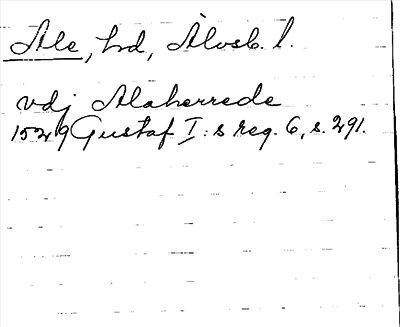 Ale, hd, Älvsb. l.
vdj Alaherrede
1529 Gustaf I:s reg. 6, s. 291.